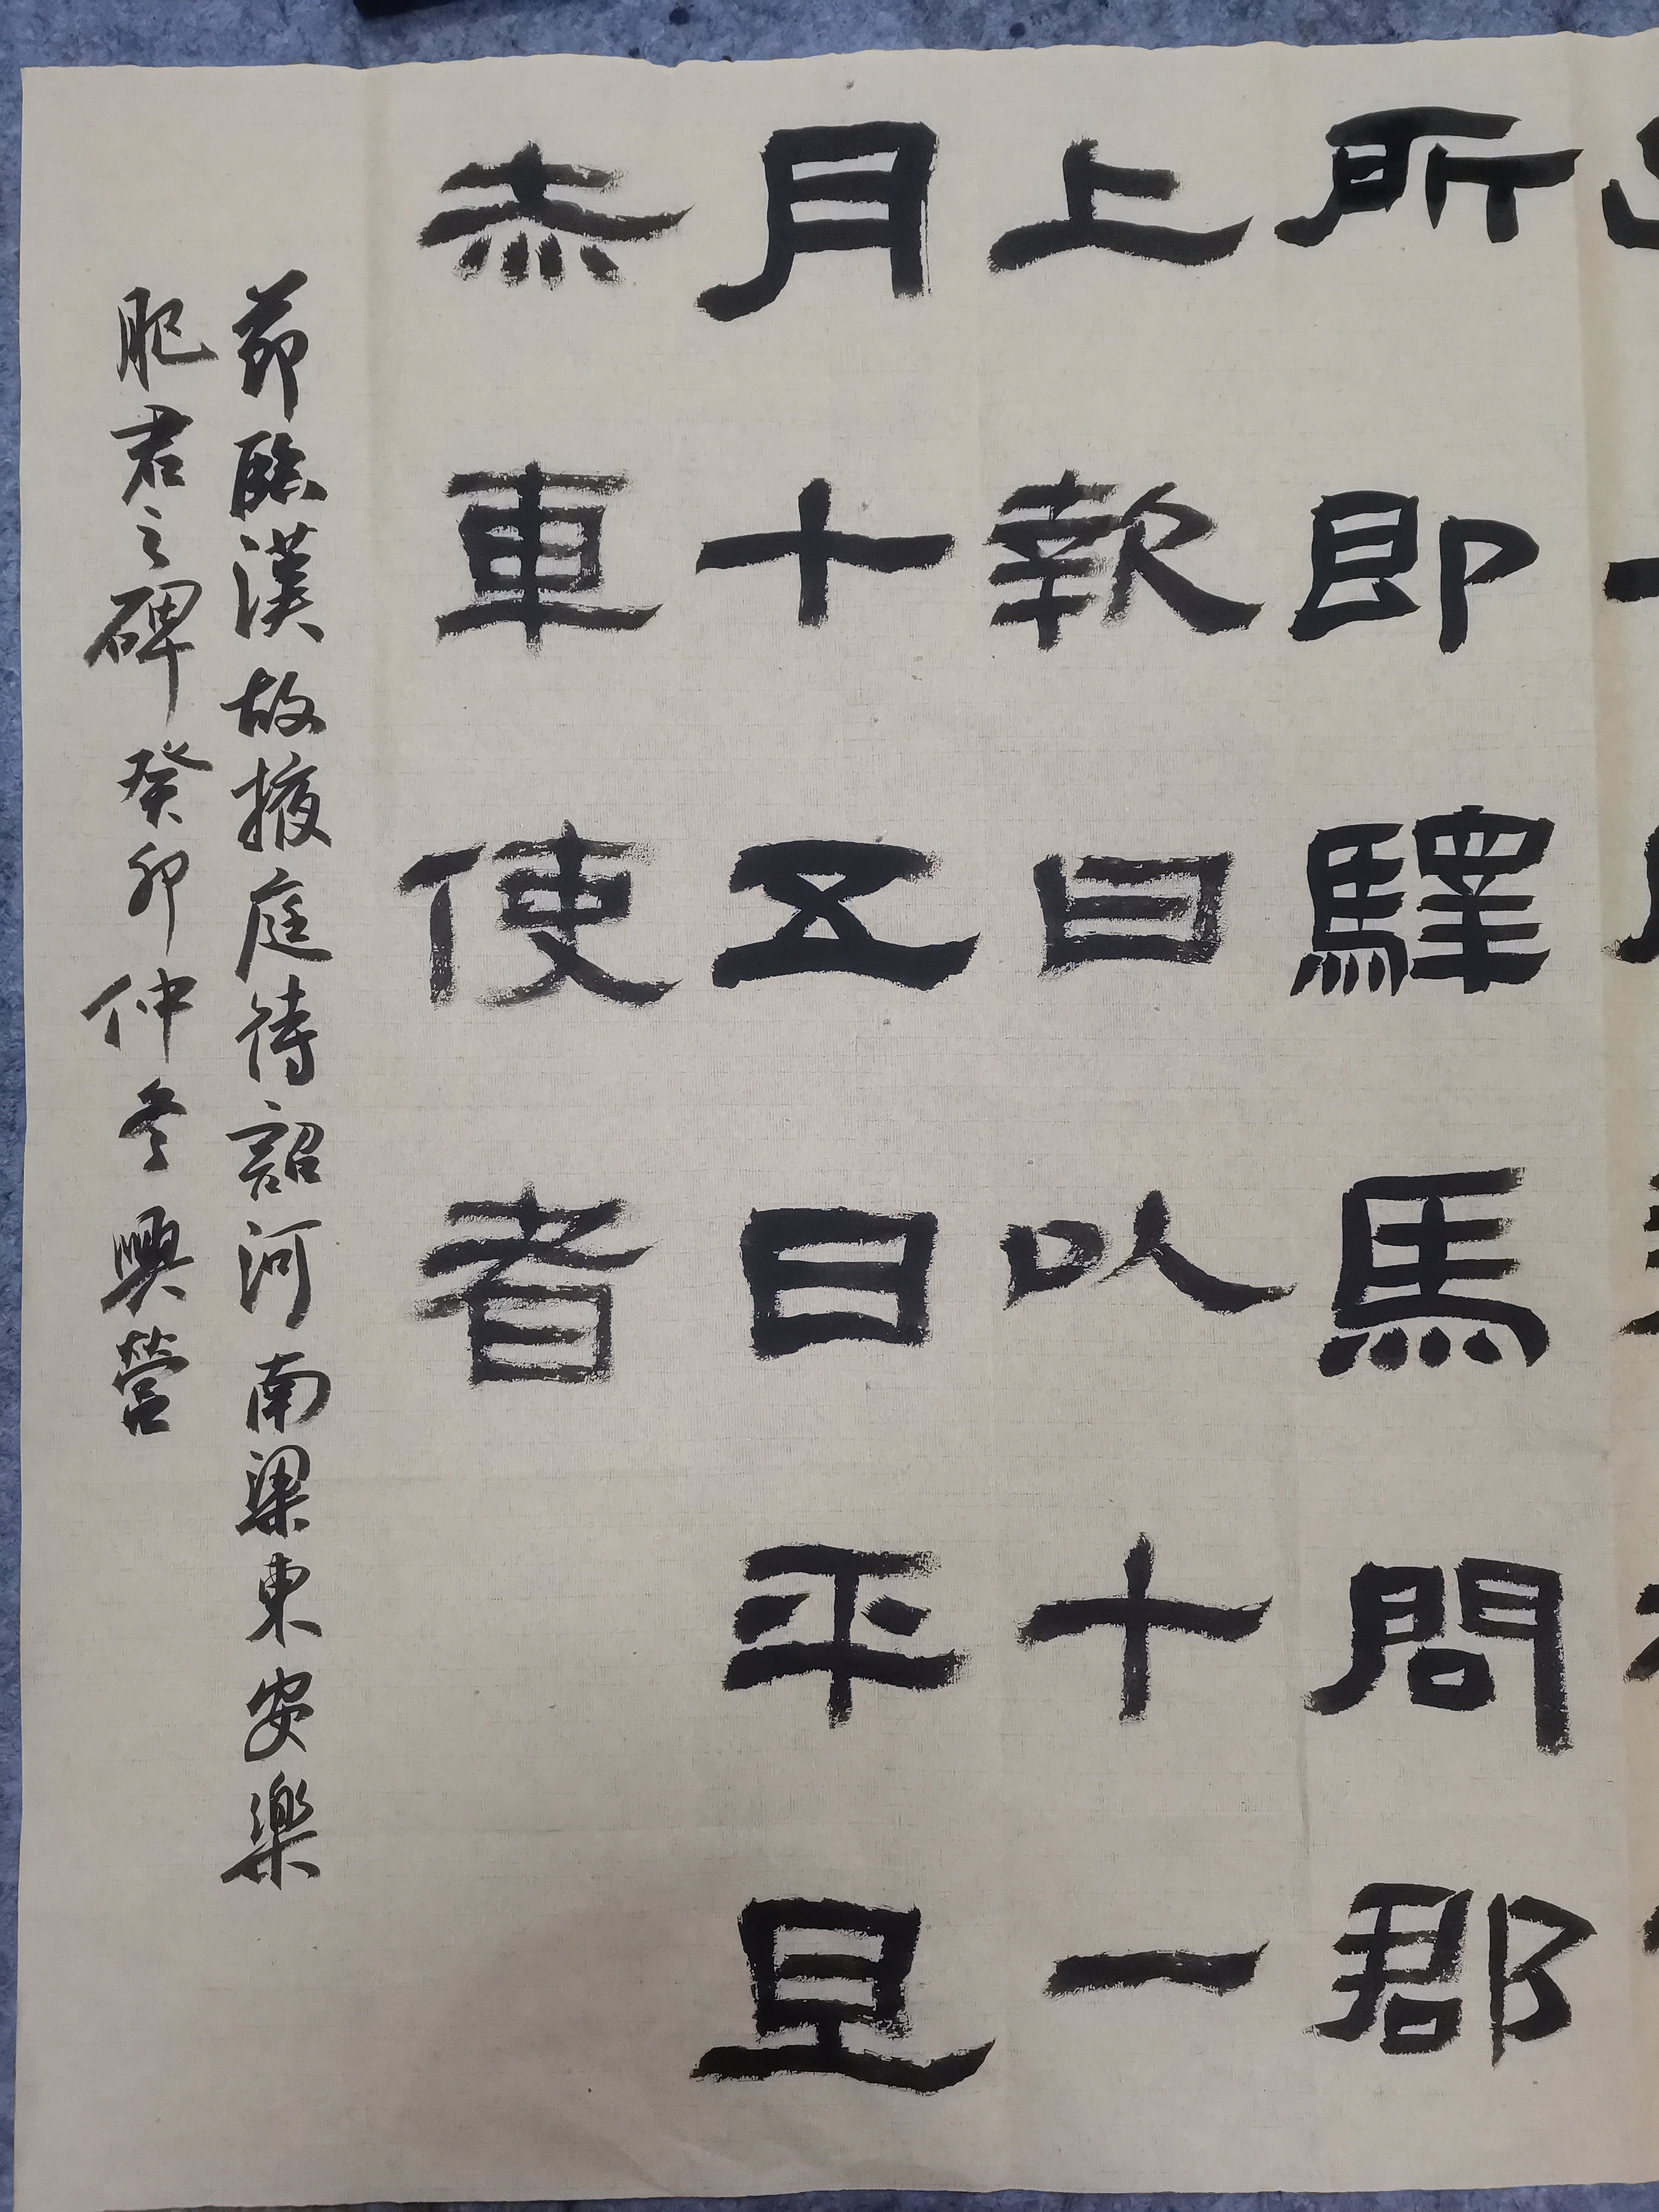 所即驛馬問郡
上報曰以十一
月十五日平旦
赤車使者
節臨漢故掖庭待詔河南梁東安樂
肥君之碑癸卯仲冬興營